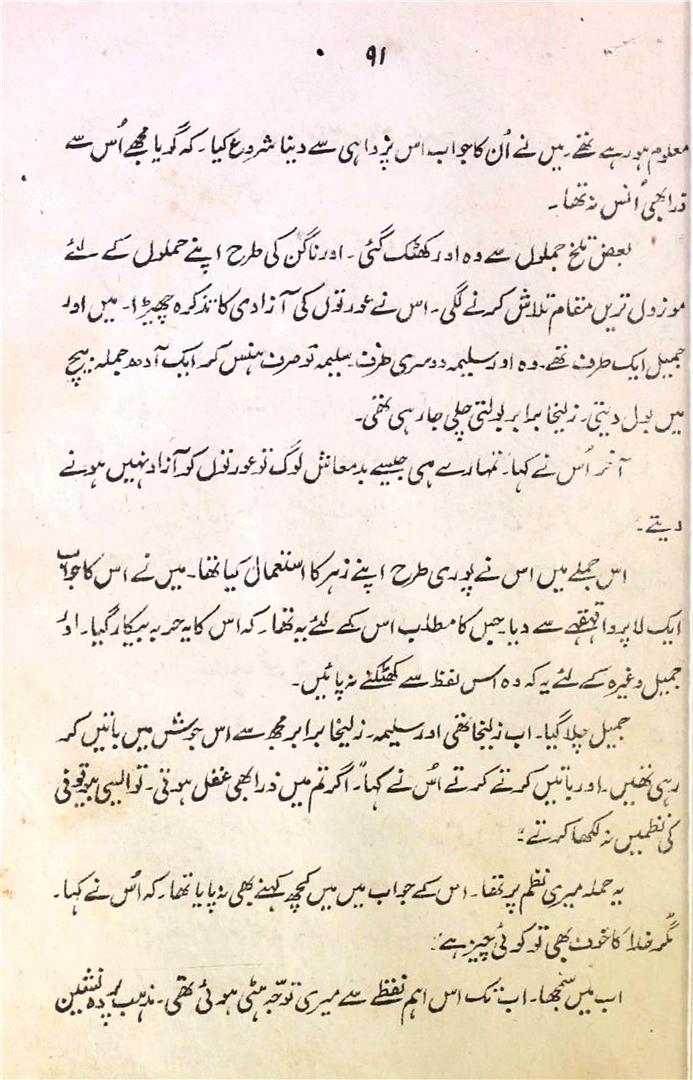 ۹۱
معلوم ہو رہے تھے۔ میں نے اُن کا جواب اس پروا ہی سے دینا شروع کیا۔ کہ گویا مجھے اُس سے
ذرا بھی اُنس نہ تھا۔
بعض تلخ جملوں سے وہ اور کھٹک گئی۔ اور ناگن کی طرح اپنے حملوں کے لئے
موزوں ترین مقام تلاش کرنے لگی۔ اس نے عورتوں کی آزادی کا تذکرہ چھیڑا۔ میں اور
جمیل ایک طرف تھے۔ وہ اور سلیمہ دوسری طرف۔ سلیمہ تو صرف ہنس کر ایک آدھ جملہ بیچ
میں بول دیتی۔ زلیخا برابر بولتی چلی جا رہی تھی۔
آخر اُس نے کہا۔ تمہارے ہی جیسے بدمعاش لوگ تو عورتوں کو آزاد نہیں ہونے
دیتے۔
اس جملے میں اس نے پوری طرح اپنے زہر کا استعمال کیا تھا۔ میں نے اس کا جواب
ایک لا پروا قہقہے سے دیا۔ جس کا مطلب اس کے لئے یہ تھا۔ کہ اس کا یہ حربہ بیکار گیا۔ اور
جمیل وغیرہ کے لئے یہ کہ وہ اس لفظ سے کھٹکنے نہ پائیں۔
جمیل چلا گیا۔ اب زلیخا تھی اور سلیمہ۔ زلیخا برابر مجھ سے اس جوش میں باتیں کر
رہی تھیں۔ اور باتیں کرتے کرتے اُس نے کہا "اگر تم میں ذرا بھی عقل ہوتی۔ تو ایسی بیوقوفی
کی نظمیں نہ لکھا کرتے"
یہ حملہ میری نظم پر تھا۔ اس کے جواب میں میں کچھ کہنے بھی نہ پایا تھا۔ کہ اُس نے کہا۔
"مگر خدا کا خوف بھی تو کوئی چیز ہے"
اب میں سمجھا۔ اب تک اس اہم نقطے سے میری توجّہ ہٹی ہوئی تھی۔ مذہب پردہ نشین